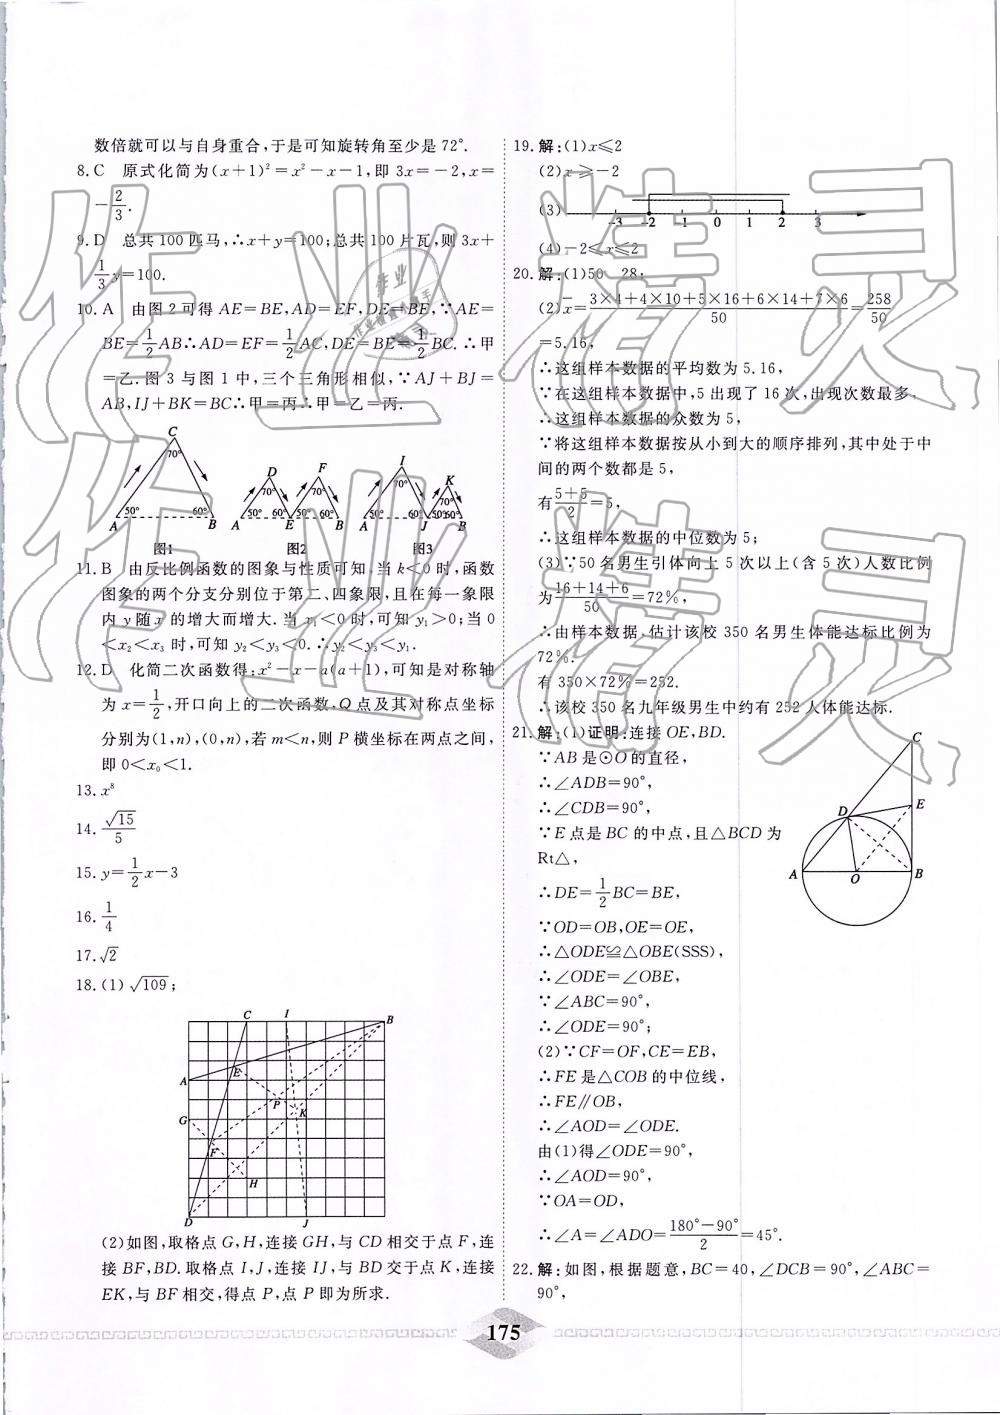 数倍就可以与自身重合,于是可知旋转角至少是72°.
8.C 原式化简为(x+1)²=x²-x-1,即3x=-2,x=
-2/3.
9.D 总共100匹马,∴x+y=100;总共100片瓦,则3x+
1/3y=100.
10.A 由图2可得AE=BE,AD=EF,DE=BE,∵AE=
BE=1/2AB∴AD=EF=1/2AC,DE=BE=1/2BC.∴甲
=乙.图3与图1中,三个三角形相似,∵AJ+BJ=
AB,IJ+BK=BC∴甲=丙∴甲=乙=丙.
C
70°
50° 60°
A B
图1
D F
70° 70°
50° 60° 50° 60°
A E B
图2
I
K
70°
70°
50° 60° 50° 60°
A J B
图3
11.B 由反比例函数的图象与性质可知,当k<0时,函数
图象的两个分支分别位于第二、四象限,且在每一象限
内y随x的增大而增大.当x₁<0时,可知y₁>0;当0
<x₂<x₃时,可知y₂<y₃<0.∴y₂<y₃<y₁.
12.D 化简二次函数得:x²-x-a(a+1),可知是对称轴
为x=1/2,开口向上的二次函数,Q点及其对称点坐标
分别为(1,n),(0,n),若m<n,则P横坐标在两点之间,
即0<x₀<1.
13.x⁸
14.√15/5
15.y=1/2x-3
16.1/4
17.√2
18.(1)√109;
C I B
A E
G P K
F
H
D J
(2)如图,取格点G,H,连接GH,与CD相交于点F,连
接BF,BD.取格点I,J,连接IJ,与BD交于点K,连接
EK,与BF相交,得点P,点P即为所求.
19.解:(1)x≤2
(2)x≥-2
(3)
-3 -2 -1 0 1 2 3
(4)-2≤x≤2
20.解:(1)50 28;
(2)x̄=(3×4+4×10+5×16+6×14+7×6)/50=258/50
=5.16,
∴这组样本数据的平均数为5.16,
∵在这组样本数据中,5出现了16次,出现次数最多,
∴这组样本数据的众数为5,
∵将这组样本数据按从小到大的顺序排列,其中处于中
间的两个数都是5,
有(5+5)/2=5,
∴这组样本数据的中位数为5;
(3)∵50名男生引体向上5次以上(含5次)人数比例
为(16+14+6)/50=72%,
∴由样本数据,估计该校350名男生体能达标比例为
72%.
有350×72%=252.
∴该校350名九年级男生中约有252人体能达标.
21.解:(1)证明:连接OE,BD.
∵AB是⊙O的直径,
∴∠ADB=90°,
∴∠CDB=90°,
∵E点是BC的中点,且△BCD为
Rt△,
∴DE=1/2BC=BE,
∵OD=OB,OE=OE,
∴△ODE≌△OBE(SSS),
∴∠ODE=∠OBE,
∵∠ABC=90°,
∴∠ODE=90°;
C
D E
A O B
(2)∵CF=OF,CE=EB,
∴FE是△COB的中位线,
∴FE∥OB,
∴∠AOD=∠ODE.
由(1)得∠ODE=90°,
∴∠AOD=90°,
∵OA=OD,
∴∠A=∠ADO=(180°-90°)/2=45°.
22.解:如图,根据题意,BC=40,∠DCB=90°,∠ABC=
90°,
175
作业精灵
作业精灵